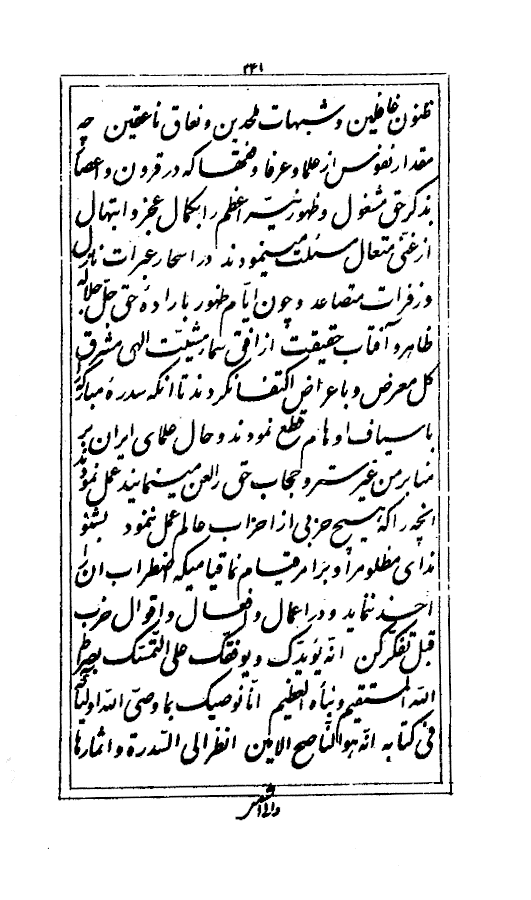 ۲۴۱
ظنون غافلین و شبهات ملحدین و نعاق ناعقین چه
مقدار نفوس از علما و عرفا و فقها که در قرون و اعصار
بذکر حق مشغول و ظهور نیّر اعظم را بکمال عجز و ابتهال
از غنی متعال مسئلت مینمودند در اسحار عبرات نازل
و زفرات متصاعد و چون ایّام ظهور باراده حق جلّ جلاله
ظاهر و آفتاب حقیقت از افق سماء مشیّت الهی مشرق
کل معرض و باعراض اکتفا نکردند تا آنکه سدره مبارکه را
باسیاف اوهام قطع نمودند و حال علمای ایران بر
منابر من غیر ستر و حجاب حق را لعن مینمایند عمل نمودند
آنچه را که هیچ حزبی از احزاب عالم عمل ننمود بشنو
ندای مظلوم را و بر امر قیام نما قیامیکه اضطراب آن را
اخذ ننماید و در اعمال و افعال و اقوال حزب
قبل تفکّر کن انّه یؤیّدک و یوفّقک علی التّمسّک بصراط
اللّه المستقیم و نبأه العظیم انّا نوصیک بما وصّی اللّه اولیائه
فی کتابه انّه هو النّاصح الامین انظر الی السّدرة و اثمارها
والشمس